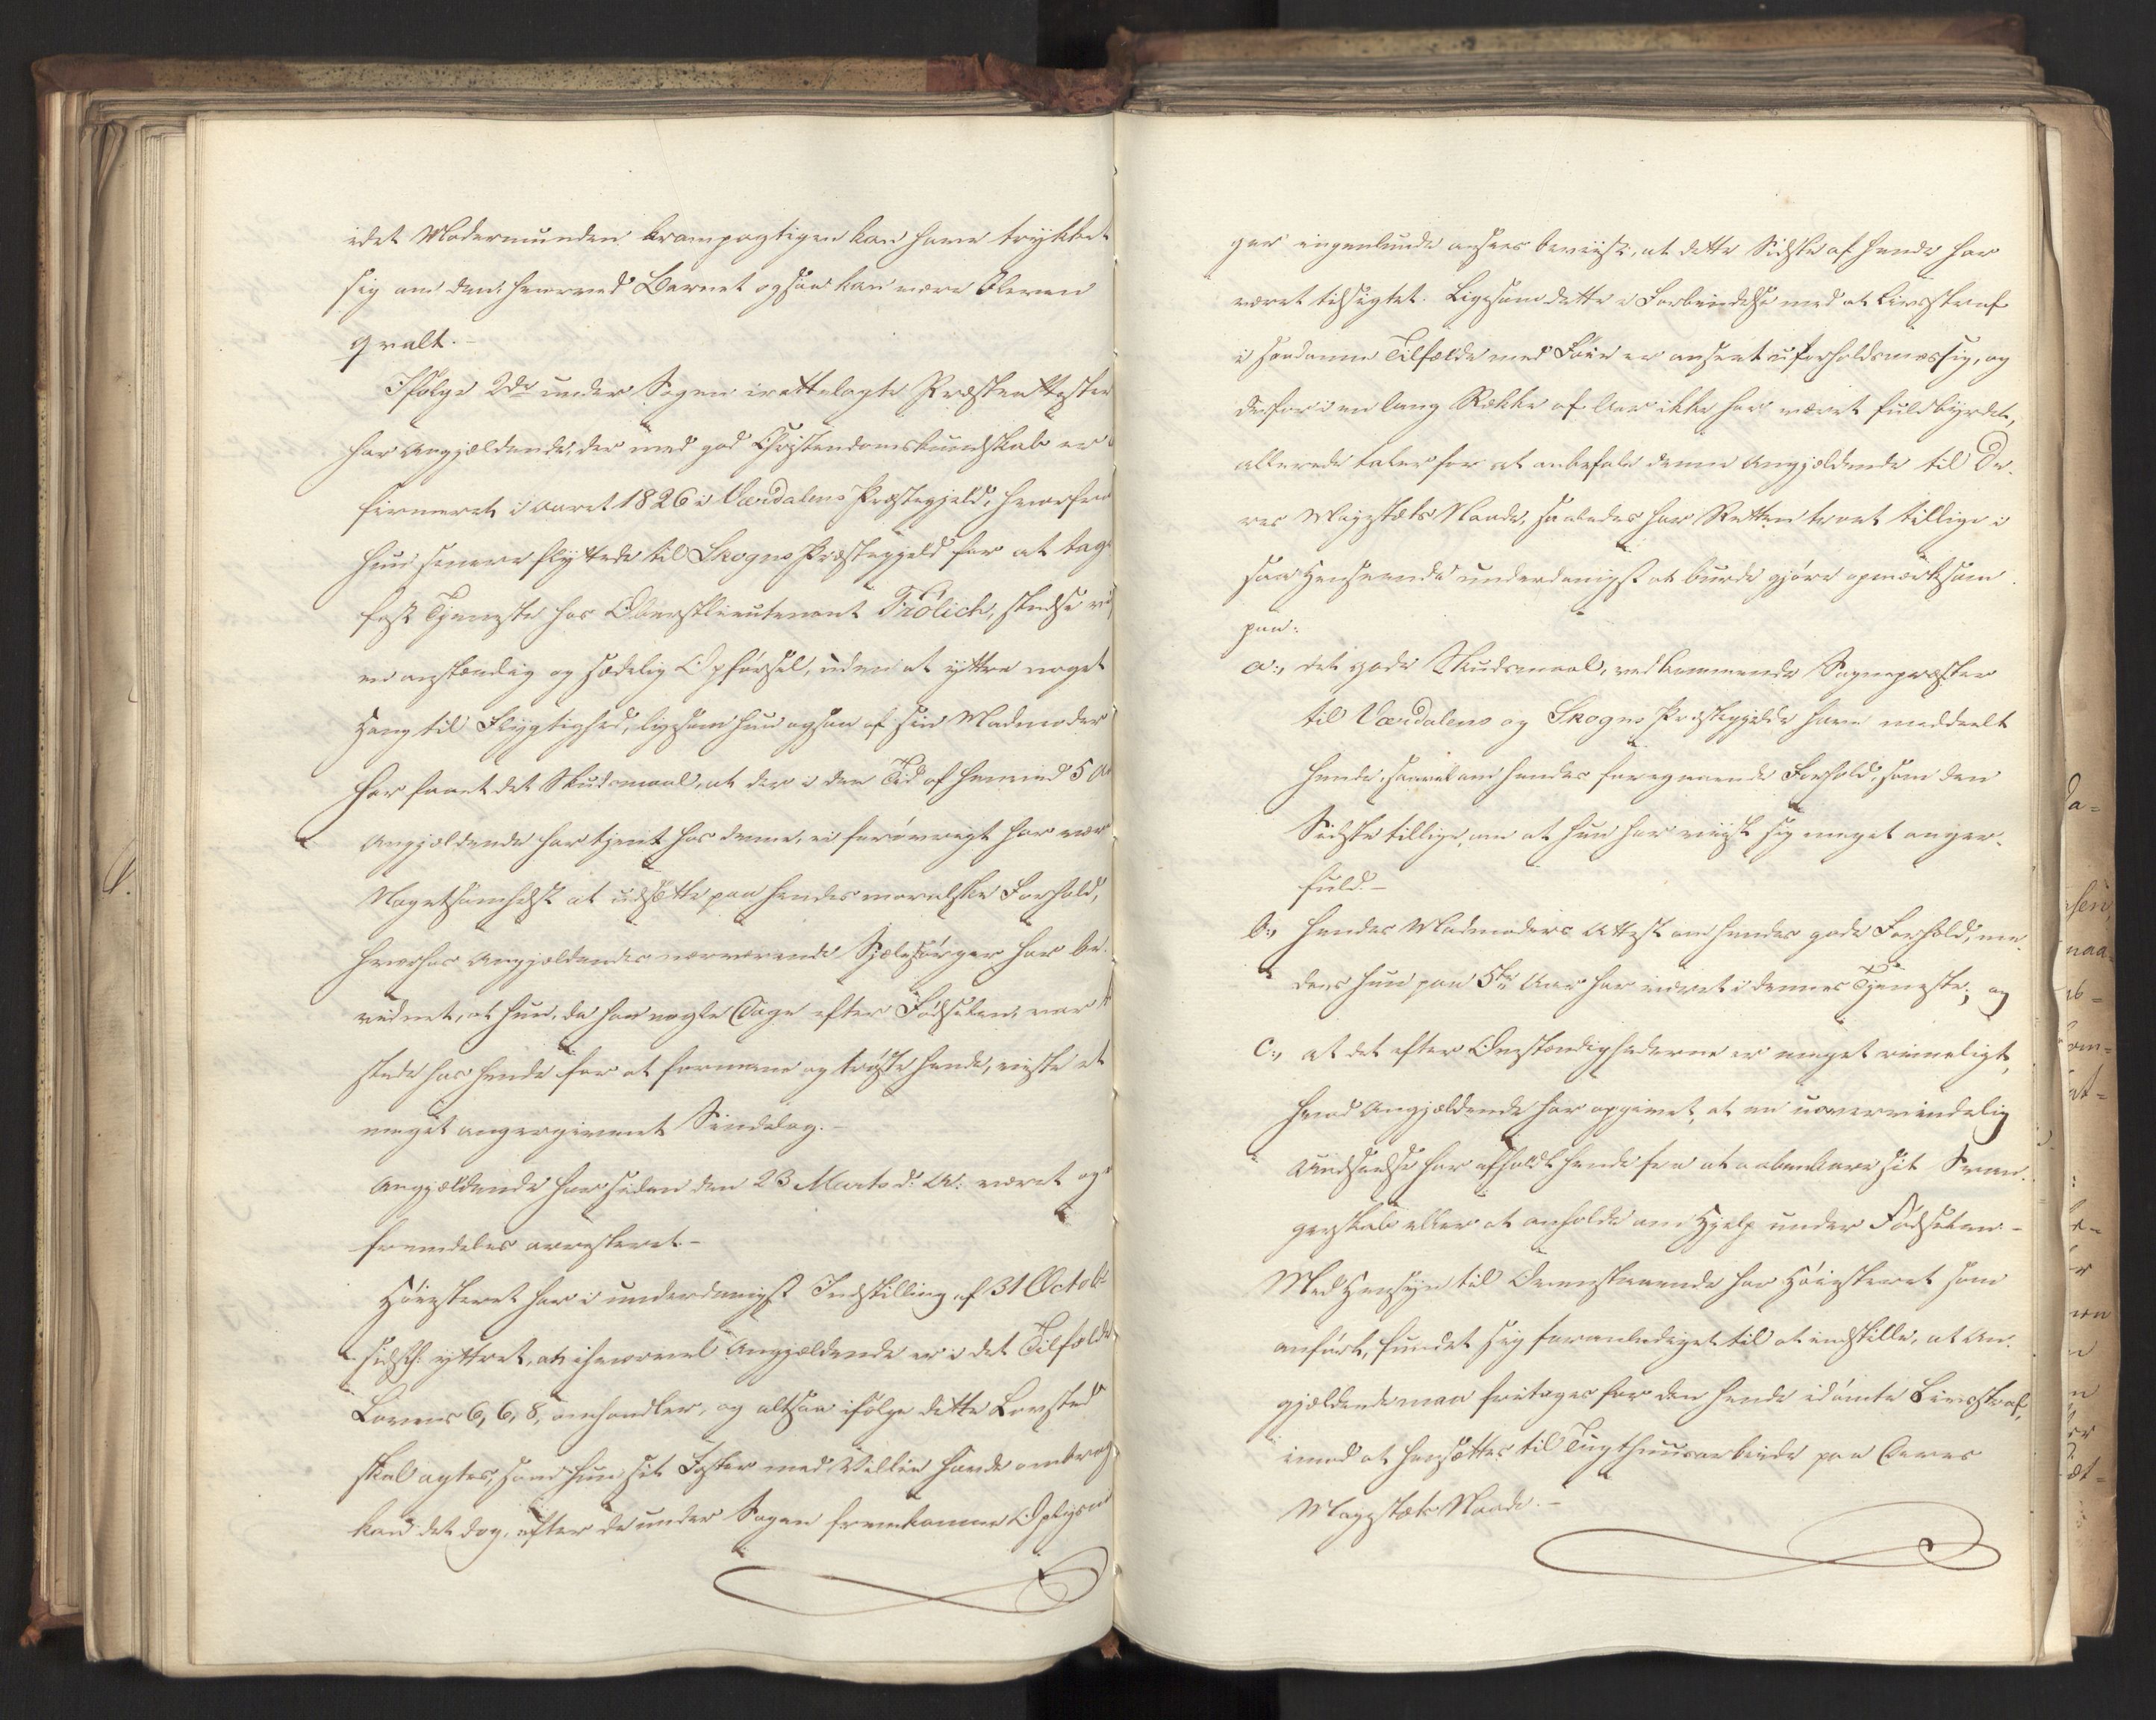 idet Modermunden krampagtigen kan have trykket
sig om den, hvorved Barnet ogsaa kan være bleven
qvalt.-
Ifølge 2de under Sagen irettelagte Præsteattester
har Angjældende, der med god Christendomskundskab er
firmeret i Aaret 1826 i Værdalens Præstegjeld, hvorfra
hun senere flyttede til Skogns Præstegjeld for at tage
fast Tjeneste hos Oberstlieutenant Frölich, stedse vii
en anstændig og sædelig Opførsel, uden at yttre noget
Hang til Flygtighed, ligesom hun ogsaa af sin Madmoder
har faaet det Skudsmaal, at der i den Tid af henved 5 Aa
Angjældende har tjent hos denne, ei forøvrigt har vær
Nogetsomhelst at udsætte paa hendes moralske Forhold,
hvorhos Angjældendes nærværende Sjælesørger har be-
vidnet, at hun, da han nogle Dage efter Fødselen var t
stede hos hende for at formane og trøste hende, viiste et
meget angergivent Sindelag.-
Angjældende har siden den 23 Marts d: A: været og
fremdeles arresteret.-
Høiesteret har i underdanigst Indstilling af 31 Octobr
sidstl: yttret, at ihvorvel Angjældende er i det Tilfælde
Lovens 6, 6, 8, omhandler, og altsaa ifølge dette Lovsted
skal agtes, som hun sit Foster med Villie havde ombrag
kan det dog, efter de under Sagen fremkomne Oplysni
ger ingenlunde ansees beviist, at dette Sidste af hende har
været tilsigtet. Ligesom dette i Forbindelse med at Livsstraf
i saadanne Tilfælde med Føie er anseet uforholdsmæssig, og
derfor i en lang Række af Aar ikke har været fuldbyrdet,
allerede taler for at anbefale denne Angjældende til De-
res Majestæts Naade, saaledes har Retten troet tillige i
saa Henseende underdanigst at burde gjøre opmærksom
paa:
a:, det gode Skudsmaal, vedkommende Sognepræster
til Værdalens og Skogns Præstegjelde have meddeelt
hende, saavel om hendes foregaaende Forhold, som den
Sidste tillige, om at hun har viist sig meget anger-
fuld.-
b:, hendes Madmoders Attest om hendes gode Forhold, me-
dens hun paa 5te Aar har været i dennes Tjeneste; og
c:, at det efter Omstændighederne er meget rimeligt,
hvad Angjældende har opgivet, at en uovervindelig
Undseelse har afholdt hende fra at aabenbare sit Svan-
gerskab eller at anholde om Hjelp under Fødselen.-
Med Hensyn til Ovenstaaende har Høiesteret som
anført, fundet sig foranlediget til at indstille, at An-
gjældende maa fritages for den hende idømte Livsstraf,
imod at hensættes til Tugthuusarbeide paa Deres
Majestæts Naade.-